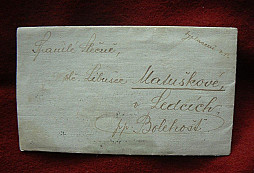 Spanilé slečně,
sl. Libuši Matuškove,
v Ledcích,
p. Bolehošt.